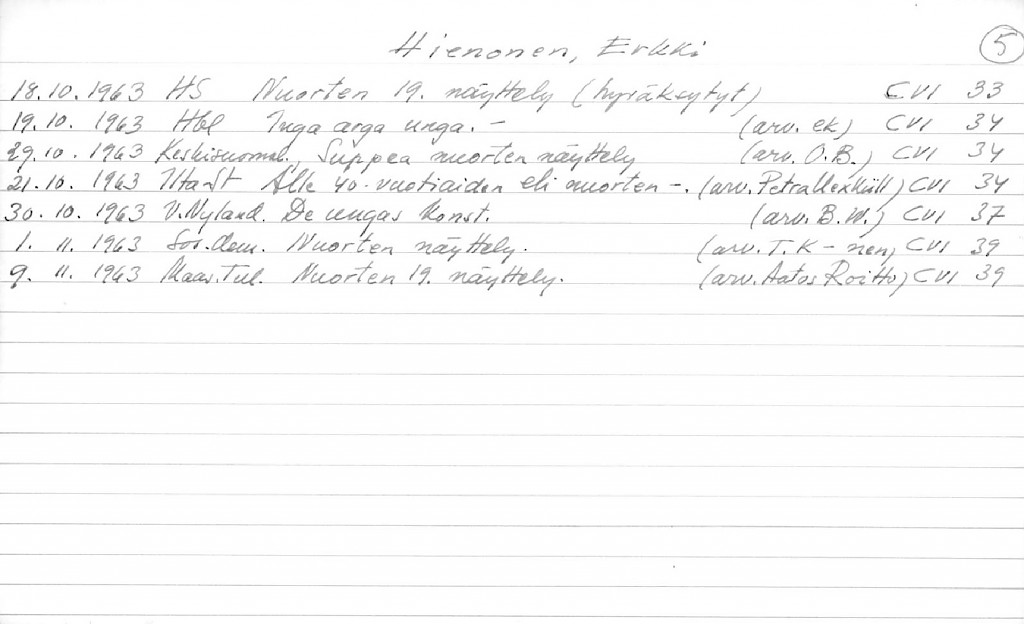 Hienonen, Erkki 5
18.10.1963 HS Nuorten 19. näyttely (hyväksytyt) CVI 33
19.10. 1963 Hbl Inga arga unga. - (arv. ek) CVI 34
29.10. 1963 Keskisuomal., Suppea nuorten näyttely (arv. O.B.) CVI 34
21.10. 1963 IltaSt Alle 40-vuotiaiden eli nuorten -. (arv. Petra Uexküll) CVI 34
30.10. 1963 V.Nyland. De ungas konst. (arv. B.W.) CVI 37
1. 11. 1963 Sos.dem. Nuorten näyttely. (arv. T.K-nen) CVI 39
9. 11. 1963 Maas.Tul. Nuorten 19. näyttely. (arv. Aatos Roitto) CVI 39